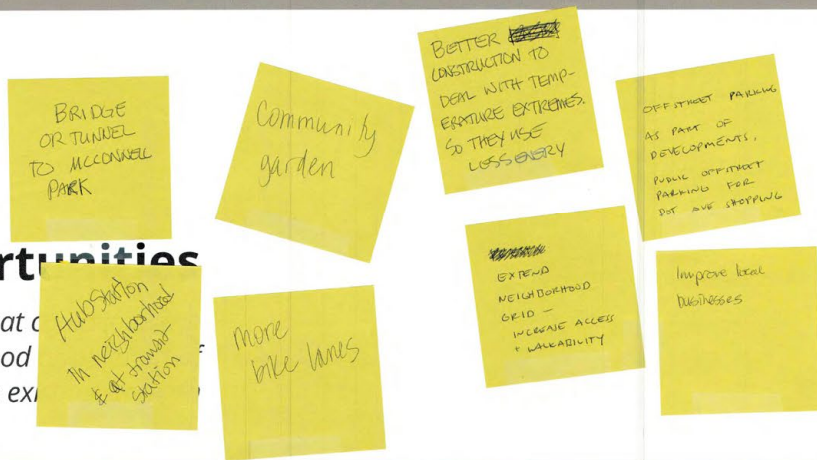 BRIDGE
OR TUNNEL
TO MCCONNELL
PARK
Community
garden
BETTER
CONSTRUCTION TO
DEAL WITH TEMP-
ERATURE EXTREMES.
SO THEY USE
LESS ENERY
OFFSTREET PARKING
AS PART OF
DEVELOPMENTS.
PUBLIC OFFSTREET
PARKING FOR
DOT AVE SHOPPING
rtunities
at
od
f
exi
HubStation
in neighborhood
& at transit
station
more
bike lanes
EXTEND
NEIGHBORHOOD
GRID —
INCREASE ACCESS
+ WALKABILITY
Improve local
businesses